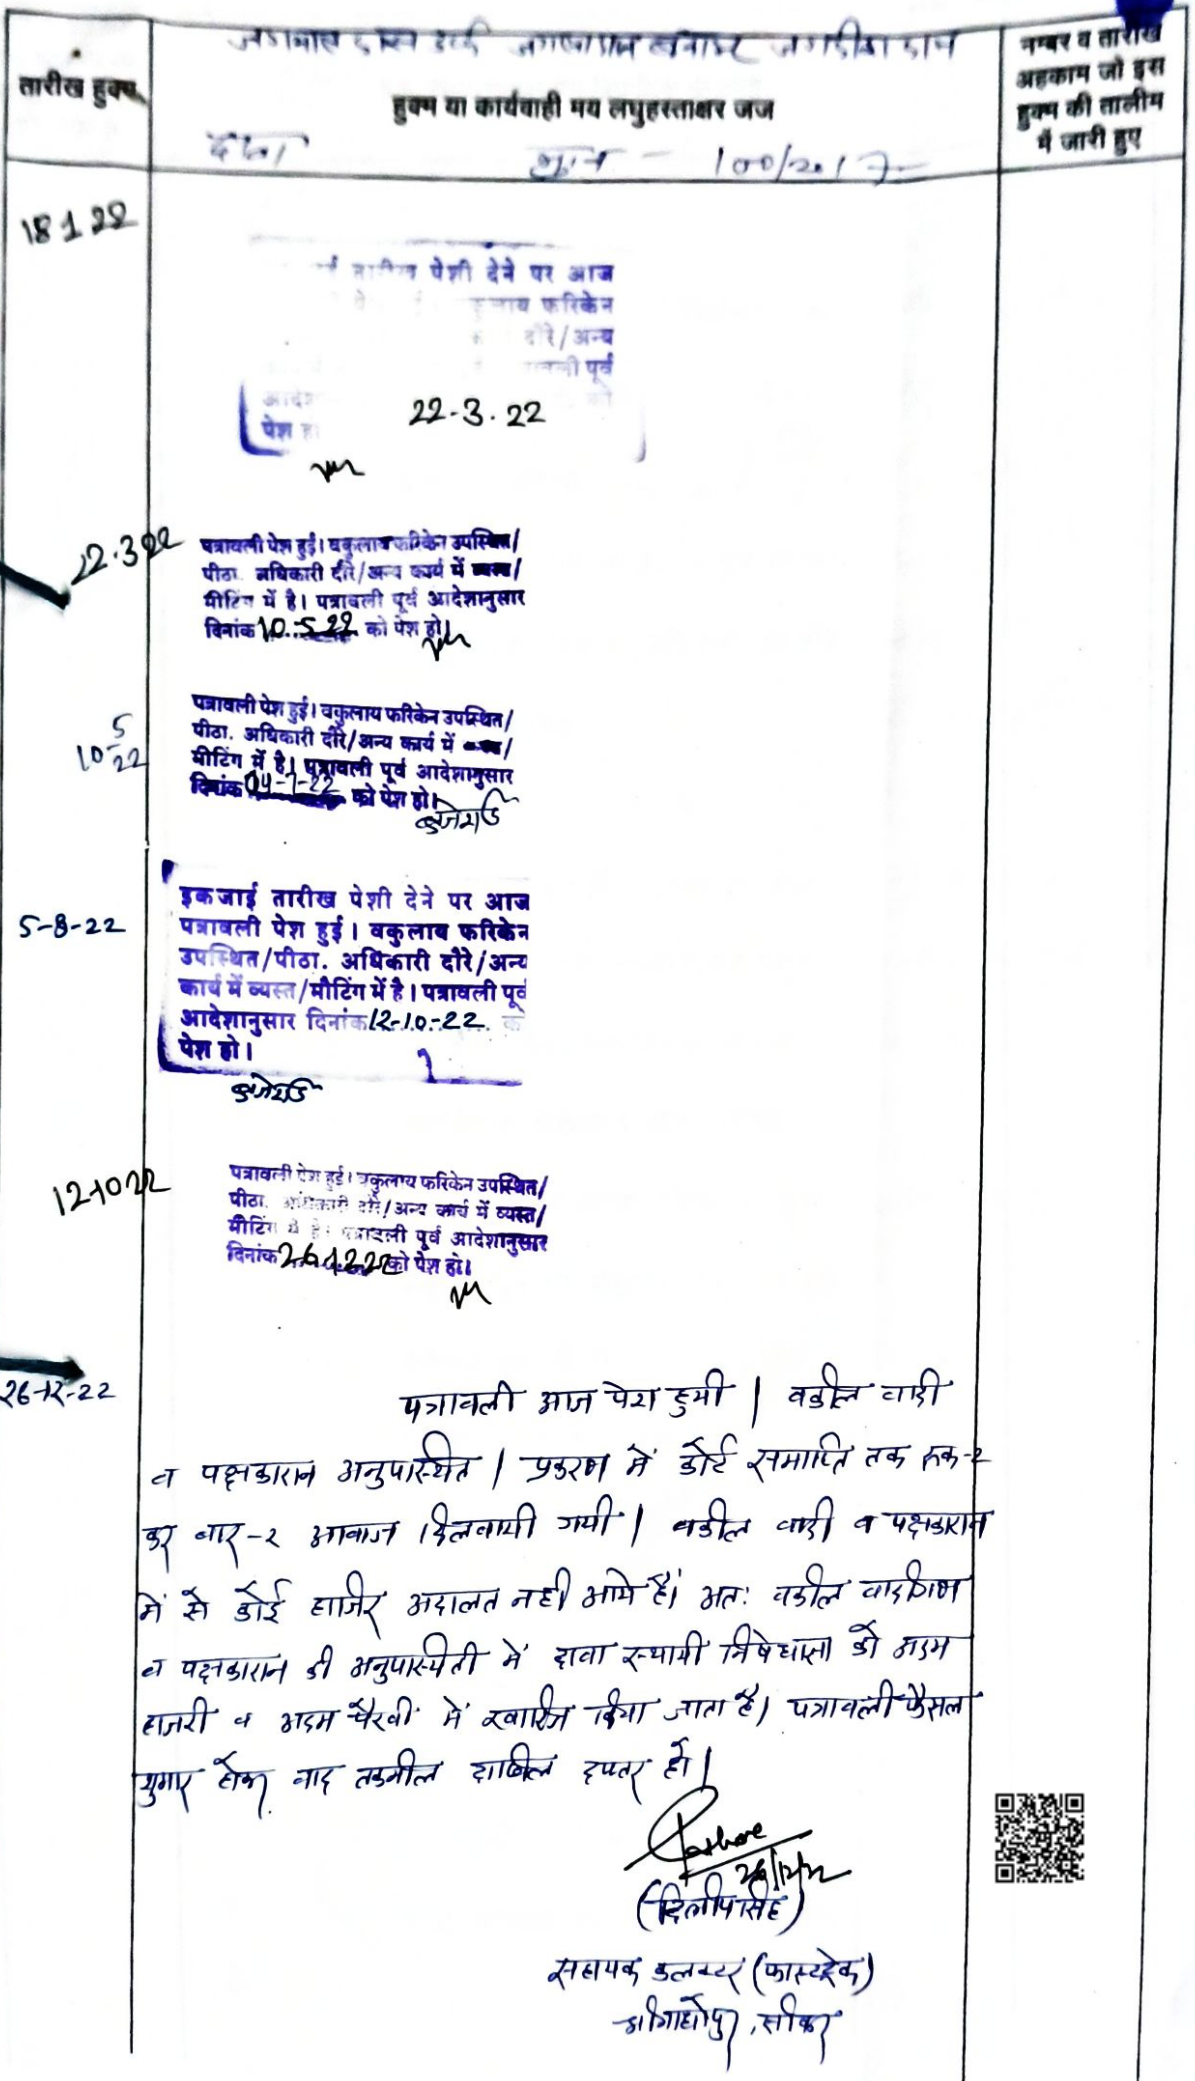 तारीख हुक्म
हुक्म या कार्यवाही मय लघुहस्ताक्षर जज
नम्बर व तारीख
अहकाम जो इस
हुक्म की तालीम
में जारी हुए
100/2017
18.1.22
तारीख पेशी देने पर आज
फरिकेन
दौरे/अन्य
पूर्व
पेश
22-3.22
22.3.22
पत्रावली पेश हुई। वकुलाय फरिकेन उपस्थित/
पीठा. अधिकारी दौरे/अन्य कार्य में व्यस्त/
मीटिंग में है। पत्रावली पूर्व आदेशानुसार
दिनांक 10.5.22 को पेश हो।
10-5-22
पत्रावली पेश हुई। वकुलाय फरिकेन उपस्थित/
पीठा. अधिकारी दौरे/अन्य कार्य में व्यस्त/
मीटिंग में है। पत्रावली पूर्व आदेशानुसार
दिनांक को पेश हो।
5-8-22
इकजाई तारीख पेशी देने पर आज
पत्रावली पेश हुई। वकुलाय फरिकेन
उपस्थित/पीठा. अधिकारी दौरे/अन्य
कार्य में व्यस्त/मीटिंग में है। पत्रावली पूर्व
आदेशानुसार दिनांक 12-10-22 को
पेश हो।
12-10-22
पत्रावली पेश हुई। वकुलाय फरिकेन उपस्थित/
पीठा. अधिकारी दौरे/अन्य कार्य में व्यस्त/
मीटिंग में है। पत्रावली पूर्व आदेशानुसार
दिनांक 26.12.22 को पेश हो।
26-12-22
पत्रावली आज पेश हुयी। वकील वादी
व पक्षकारान अनुपस्थित। प्रकरण में कोर्ट समाप्ति तक रूक-२
कर बार-२ आवाज दिलवायी गयी। वकील वादी व पक्षकारान
में से कोई हाजिर अदालत नही आये है। अतः वकील वादीगण
व पक्षकारान की अनुपस्थिती में दावा स्थायी निषेधाज्ञा को अदम
हाजरी व अदम पैरवी में खारिज किया जाता है। पत्रावली फैसल
शुमार होकर बाद तकमील दाखिल दफ्तर हो।
26/12/22
(दिलीपसिंह)
सहायक कलक्टर (फास्टट्रेक)
श्रीमाधोपुर, सीकर